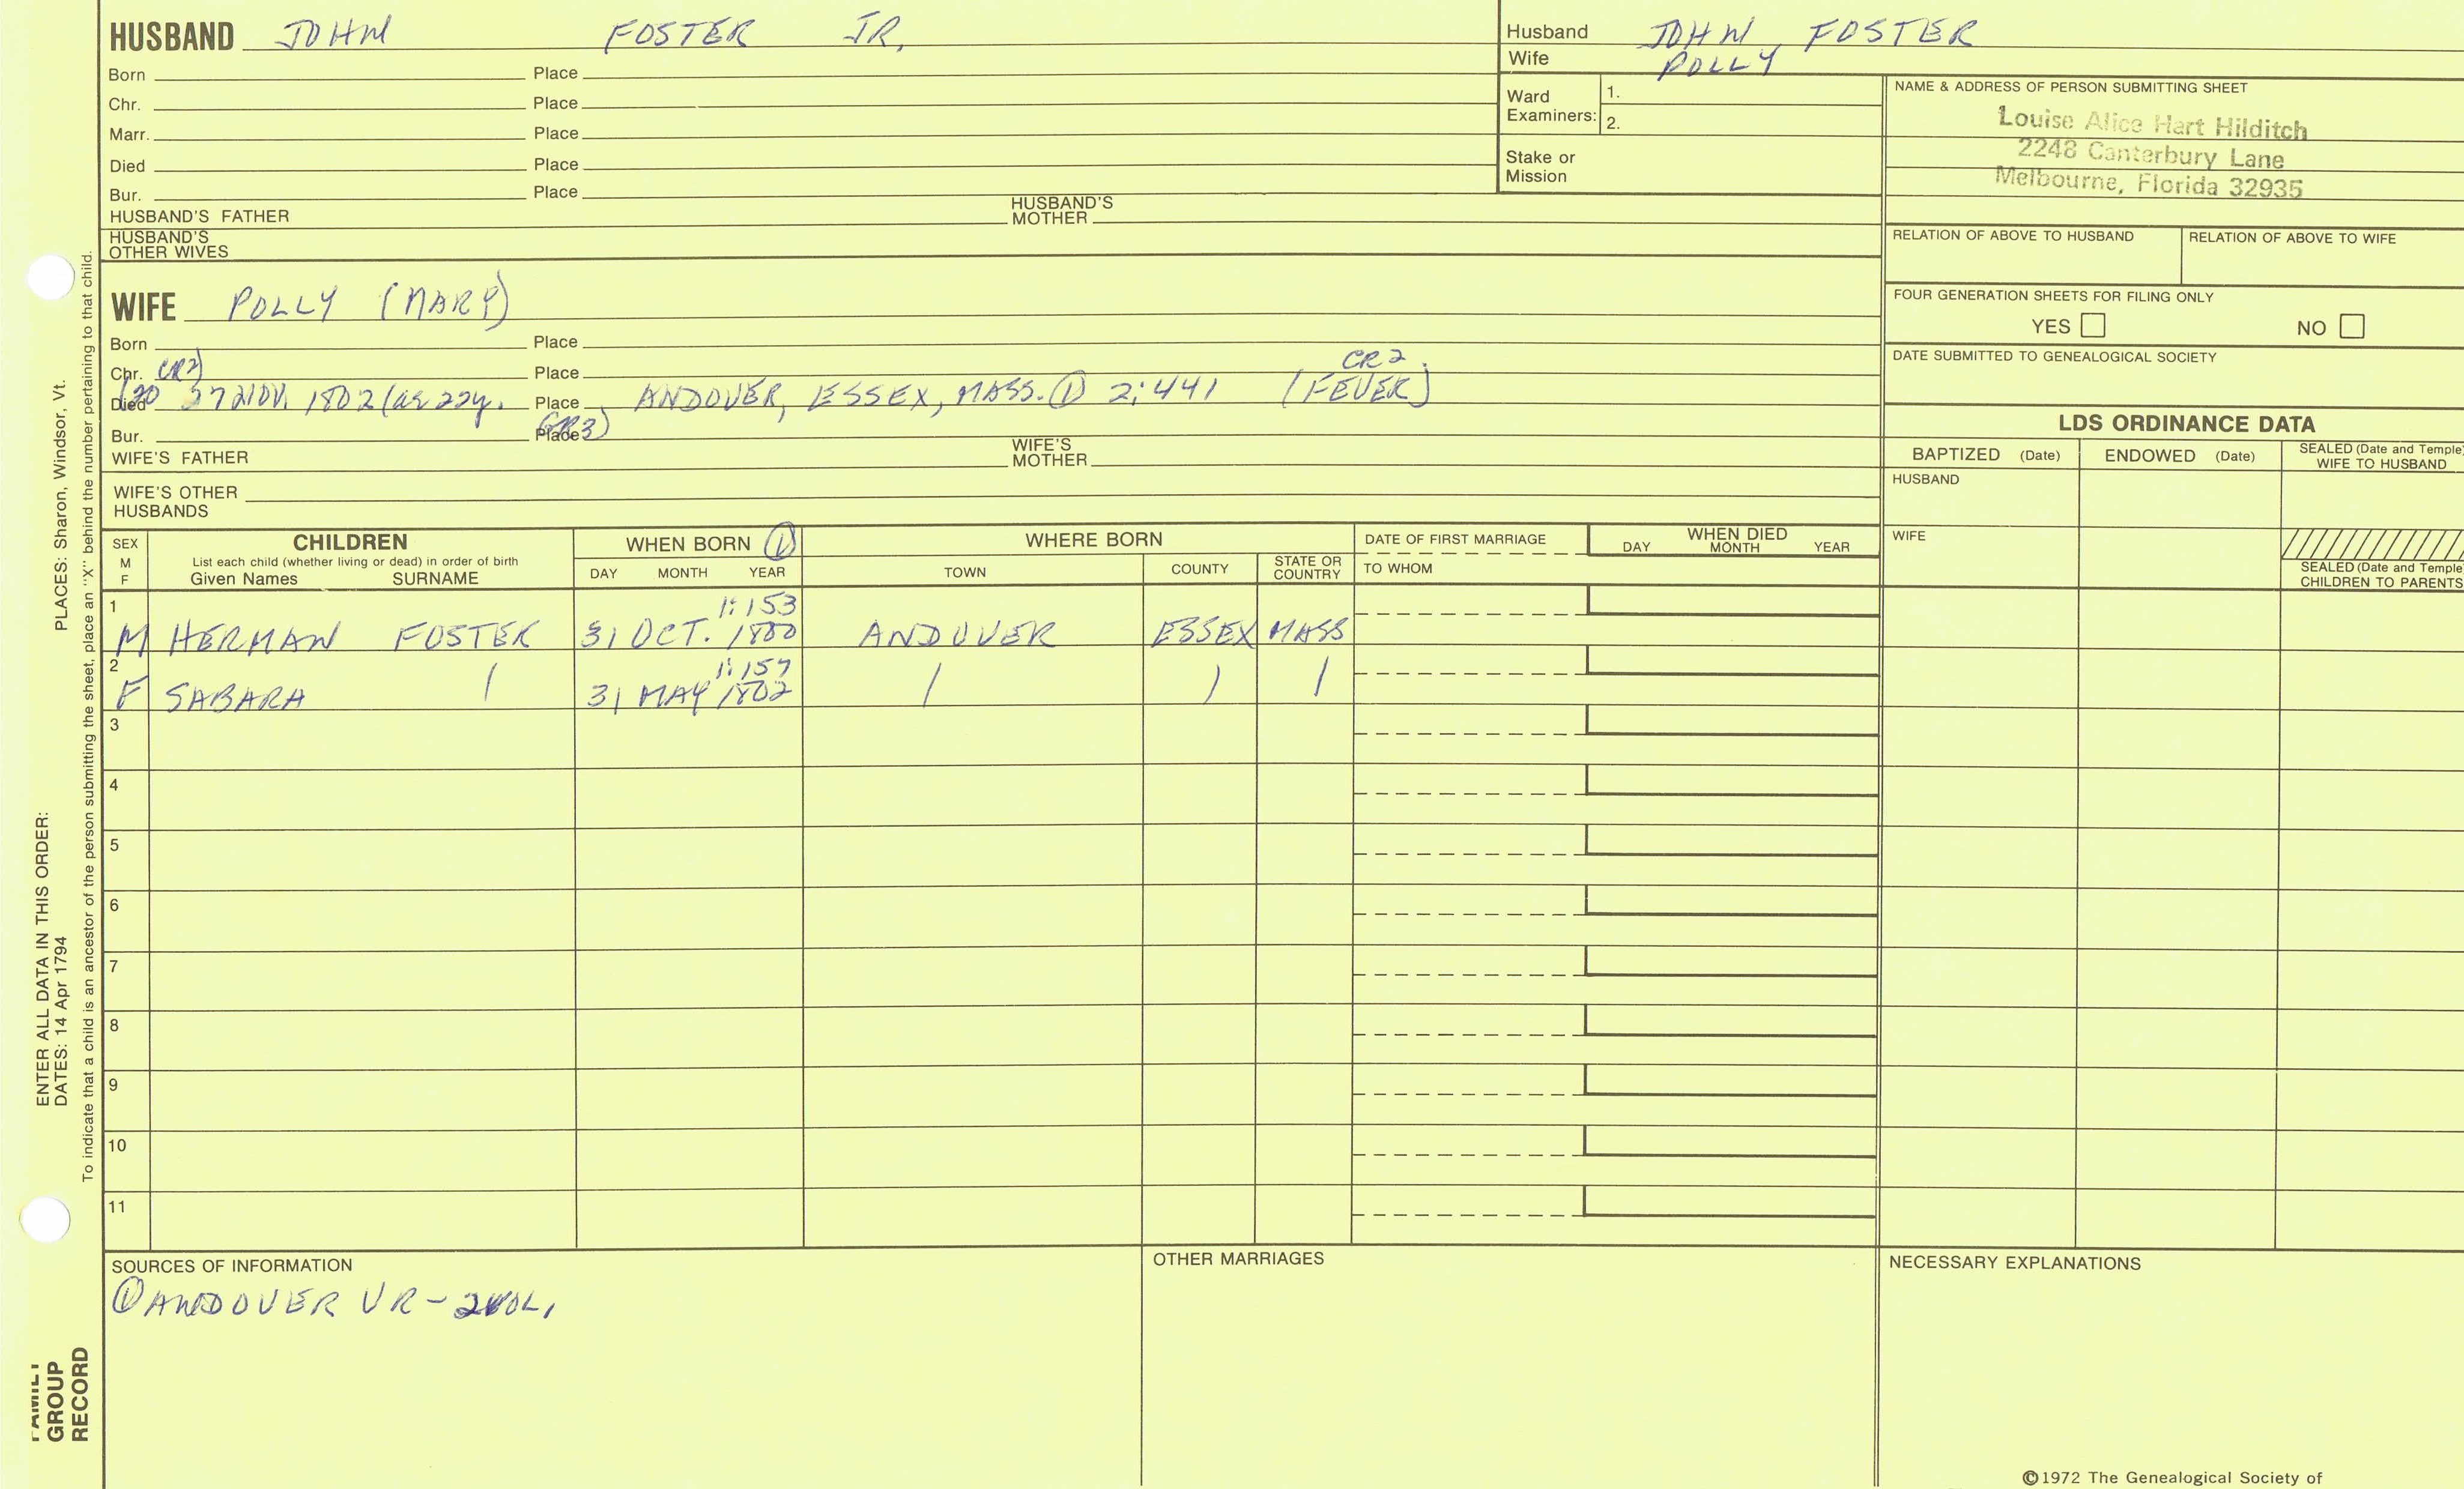 HUSBAND JOHN FOSTER JR.
Born Place
Chr. Place
Marr. Place
Died Place
Bur. Place
HUSBAND'S FATHER HUSBAND'S MOTHER
HUSBAND'S OTHER WIVES
Husband JOHN FOSTER
Wife POLLY
Ward Examiners: 1.
2.
Stake or Mission
NAME & ADDRESS OF PERSON SUBMITTING SHEET
Louise Alice Hart Hilditch
2248 Canterbury Lane
Melbourne, Florida 32935
RELATION OF ABOVE TO HUSBAND RELATION OF ABOVE TO WIFE
FOUR GENERATION SHEETS FOR FILING ONLY
YES NO
DATE SUBMITTED TO GENEALOGICAL SOCIETY
WIFE POLLY (MARY)
Born Place
Chr. CR2) Place CR2
Died NOV. 1802 (ae 22y. Place ANDOVER, ESSEX, MASS. ① 2:441 (FEVER)
Bur. Place GR3)
WIFE'S FATHER WIFE'S MOTHER
WIFE'S OTHER HUSBANDS
LDS ORDINANCE DATA
BAPTIZED (Date) ENDOWED (Date) SEALED (Date and Temple) WIFE TO HUSBAND
HUSBAND
WIFE
SEALED (Date and Temple) CHILDREN TO PARENTS
SEX M F
CHILDREN
List each child (whether living or dead) in order of birth
Given Names SURNAME
WHEN BORN ①
DAY MONTH YEAR
WHERE BORN
TOWN COUNTY STATE OR COUNTRY
DATE OF FIRST MARRIAGE
TO WHOM
WHEN DIED
DAY MONTH YEAR
1 1:153
M HERMAN FOSTER 31 OCT. 1800 ANDOVER ESSEX MASS
2 1:157
F SABARA / 31 MAY 1802 / / /
3
4
5
6
7
8
9
10
11
SOURCES OF INFORMATION
① ANDOVER VR - 2VOL,
OTHER MARRIAGES
NECESSARY EXPLANATIONS
©1972 The Genealogical Society of
PLACES: Sharon, Windsor, Vt.
ENTER ALL DATA IN THIS ORDER:
DATES: 14 Apr 1794
To indicate that a child is an ancestor of the person submitting the sheet, place an "X" behind the number pertaining to that child.
FAMILY
GROUP
RECORD